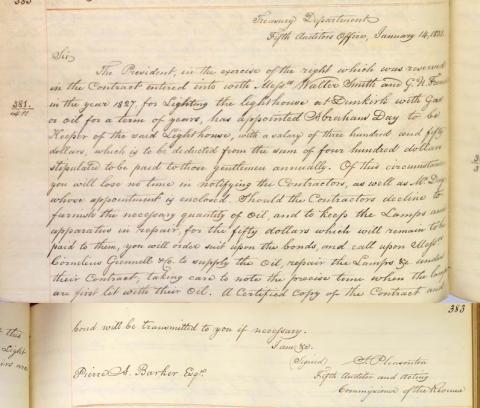 383
Treasury Department
Fifth Auditors Office, January 14, 183
Sir
The President, in the exercise of the right which was reserved
in the Contract entered into with Messrs Walter Smith and G. W.
381.
in the year 1827, for Lighting the Lighthouse at Dunkirk with Gas
or oil for a term of years, has appointed Abraham Day to be
Keeper of the said Light house, with a salary of three hundred and fifty
dollars, which is to be deducted from the sum of four hundred dollars
stipulated to be paid to those gentlemen annually. Of this circumstance
you will lose no time in notifying the Contractors, as well as Mr Day
whose appointment is enclosed. Should the Contractors decline to
furnish the necessary quantity of Oil, and to keep the Lamps and
apparatus in repair, for the fifty dollars which will remain to be
paid to them, you will order suit upon the bonds, and call upon Messrs
Cornelius Grennell & Co. to supply the Oil, repair the Lamps &c under
their Contract, taking care to note the precise time when the Lamps
are first lit with their Oil. A Certified Copy of the Contract and
383
bond will be transmitted to you if necessary.
I am &c.
(Signed) S. Pleasonton
Pierre A. Barker Esqr.
Fifth Auditor and Acting
Commissioner of the Revenue
this
Light
are